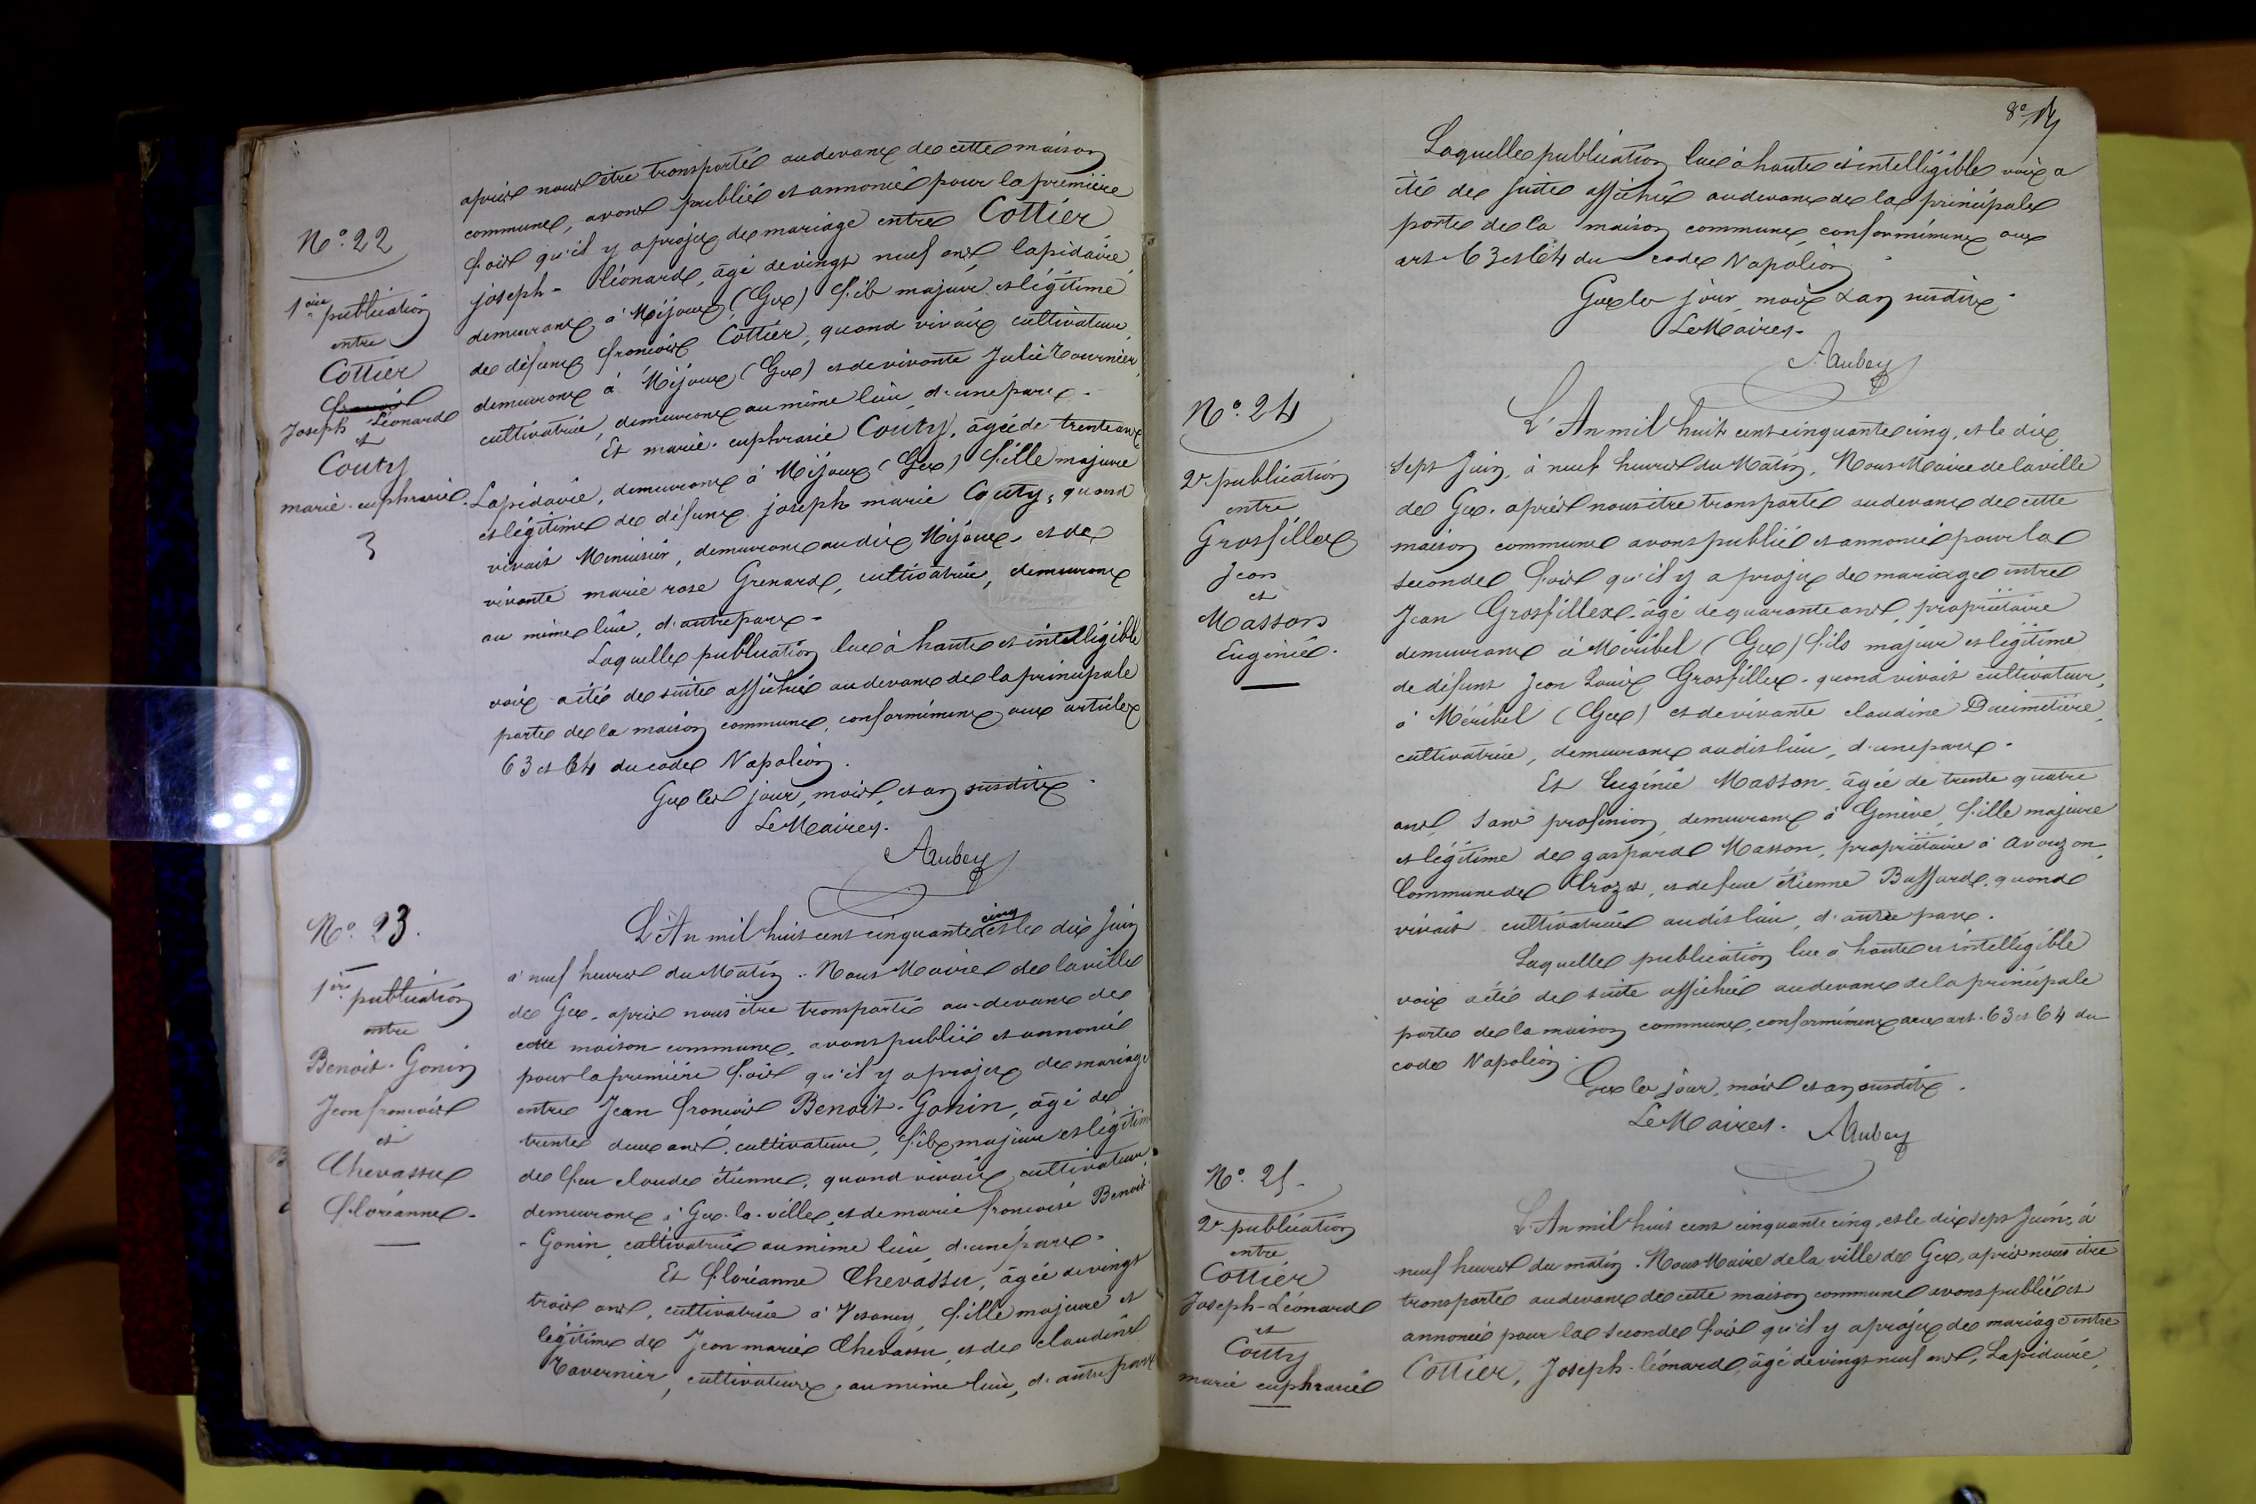 N.o 22
1ère publication
entre
Cottier
François
Joseph Léonard
et
Couty
marie euphrasie.
3
après nous être transporté au devant de cette maison
commune, avons publié et annoncé pour la première
fois qu'il y a projet de mariage entre Cottier
joseph-léonard, âgé de vingt neuf ans lapidaire
demeurant à Mijoux (Gex) fils majeur et légitime
de défunt françois Cottier, quand vivait cultivateur,
demeurant à Mijoux (Gex) et de vivante Julie Tournier,
cultivatrice, demeurant au même lieu, d'une part.
Et marie-euphrasie Couty, âgée de trente ans
Lapidaire, demeurant à Mijoux (Gex) fille majeure
et légitime de défunt joseph marie Couty, quand
vivait Menuisier, demeurant au dit Mijoux, et de
vivante marie rose Grenard, cultivatrice, demeurant
au même lieu, d'autre part.
Laquelle publication lue à haute et intelligible
voix a été de suite affichée au devant de la principale
porte de la maison commune, conformément aux articles
63 et 64 du code Napoléon.
Gex les jour, mois, et an susdits.
Le Maire.
Aubey
N.o 23.
1ère publication
entre
Benoit-Gonin
Jean françois
et
Chevassu
floréanne.
L'An mil huit cent cinquante cinq et le dix Juin
à neuf heures du Matin. Nous Maire de la ville
de Gex, après nous être transporté au-devant de
cette maison commune, avons publié et annoncé
pour la première fois qu'il y a projet de mariage
entre Jean françois Benoit-Gonin, âgé de
trente deux ans, cultivateur, fils majeur et légitime
de feu claude étienne, quand vivait cultivateur,
demeurant à Gex-la-ville, et de marie françoise Benoit
-Gonin, cultivatrice au même lieu, d'une part.
Et floréanne Chevassu, âgée de vingt
trois ans, cultivatrice à Vesancy, fille majeure et
légitime de Jean marie Chevassu, et de claudine
Tavernier, cultivateurs, au même lieu, d'autre part
8e 14
Laquelle publication lue à haute et intelligible voix a
été de suite affichée au devant de la principale
porte de la maison commune, conformément aux
art. 63 et 64 du code Napoléon
Gex les jour, mois & an susdits.
Le Maire.
Aubey
N.o 24
2e publication
entre
Grosfillex
Jean
et
Masson
Eugénie.
L'An mil huit cent cinquante cinq, et le dix
sept Juin, à neuf heures du Matin, Nous Maire de la ville
de Gex, après nous être transporté au devant de cette
maison commune avons publié et annoncé pour la
seconde fois qu'il y a projet de mariage entre
Jean Grosfillex, âgé de quarante ans, propriétaire
demeurant à Méribel (Gex) fils majeur et légitime
de défunt Jean Louis Grosfillex, quand vivait cultivateur,
à Méribel (Gex) et de vivante claudine Ducimetière,
cultivatrice, demeurant au dit lieu, d'une part.
Et Eugénie Masson, âgée de trente quatre
ans sans profession, demeurant à Genève, fille majeure
et légitime de gaspard Masson, propriétaire à avouzon,
Commune de Crozet, et de feue étienne Buffard, quand
vivait cultivatrice au dit lieu, d'autre part.
Laquelle publication lue à haute et intelligible
voix a été de suite affichée au devant de la principale
porte de la maison commune, conformément aux art. 63 et 64 du
code Napoléon.
Gex les jour, mois et an susdits.
Le Maire. Aubey
N.o 25.
2e publication
entre
Cottier
Joseph-Léonard
et
Couty
marie euphrasie
L'An mil huit cent cinquante cinq, et le dix sept Juin, à
neuf heures du matin. Nous Maire de la ville de Gex, après nous être
transporté au devant de cette maison commune avons publié et
annoncé pour la seconde fois qu'il y a projet de mariage entre
Cottier, Joseph-léonard, âgé de vingt neuf ans, Lapidaire,